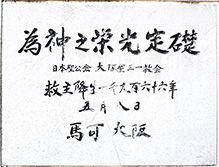 為神之栄光定礎
日本聖公会 大阪聖三一教会
救主降生一千九百六十六年
五月八日
馬可 大阪